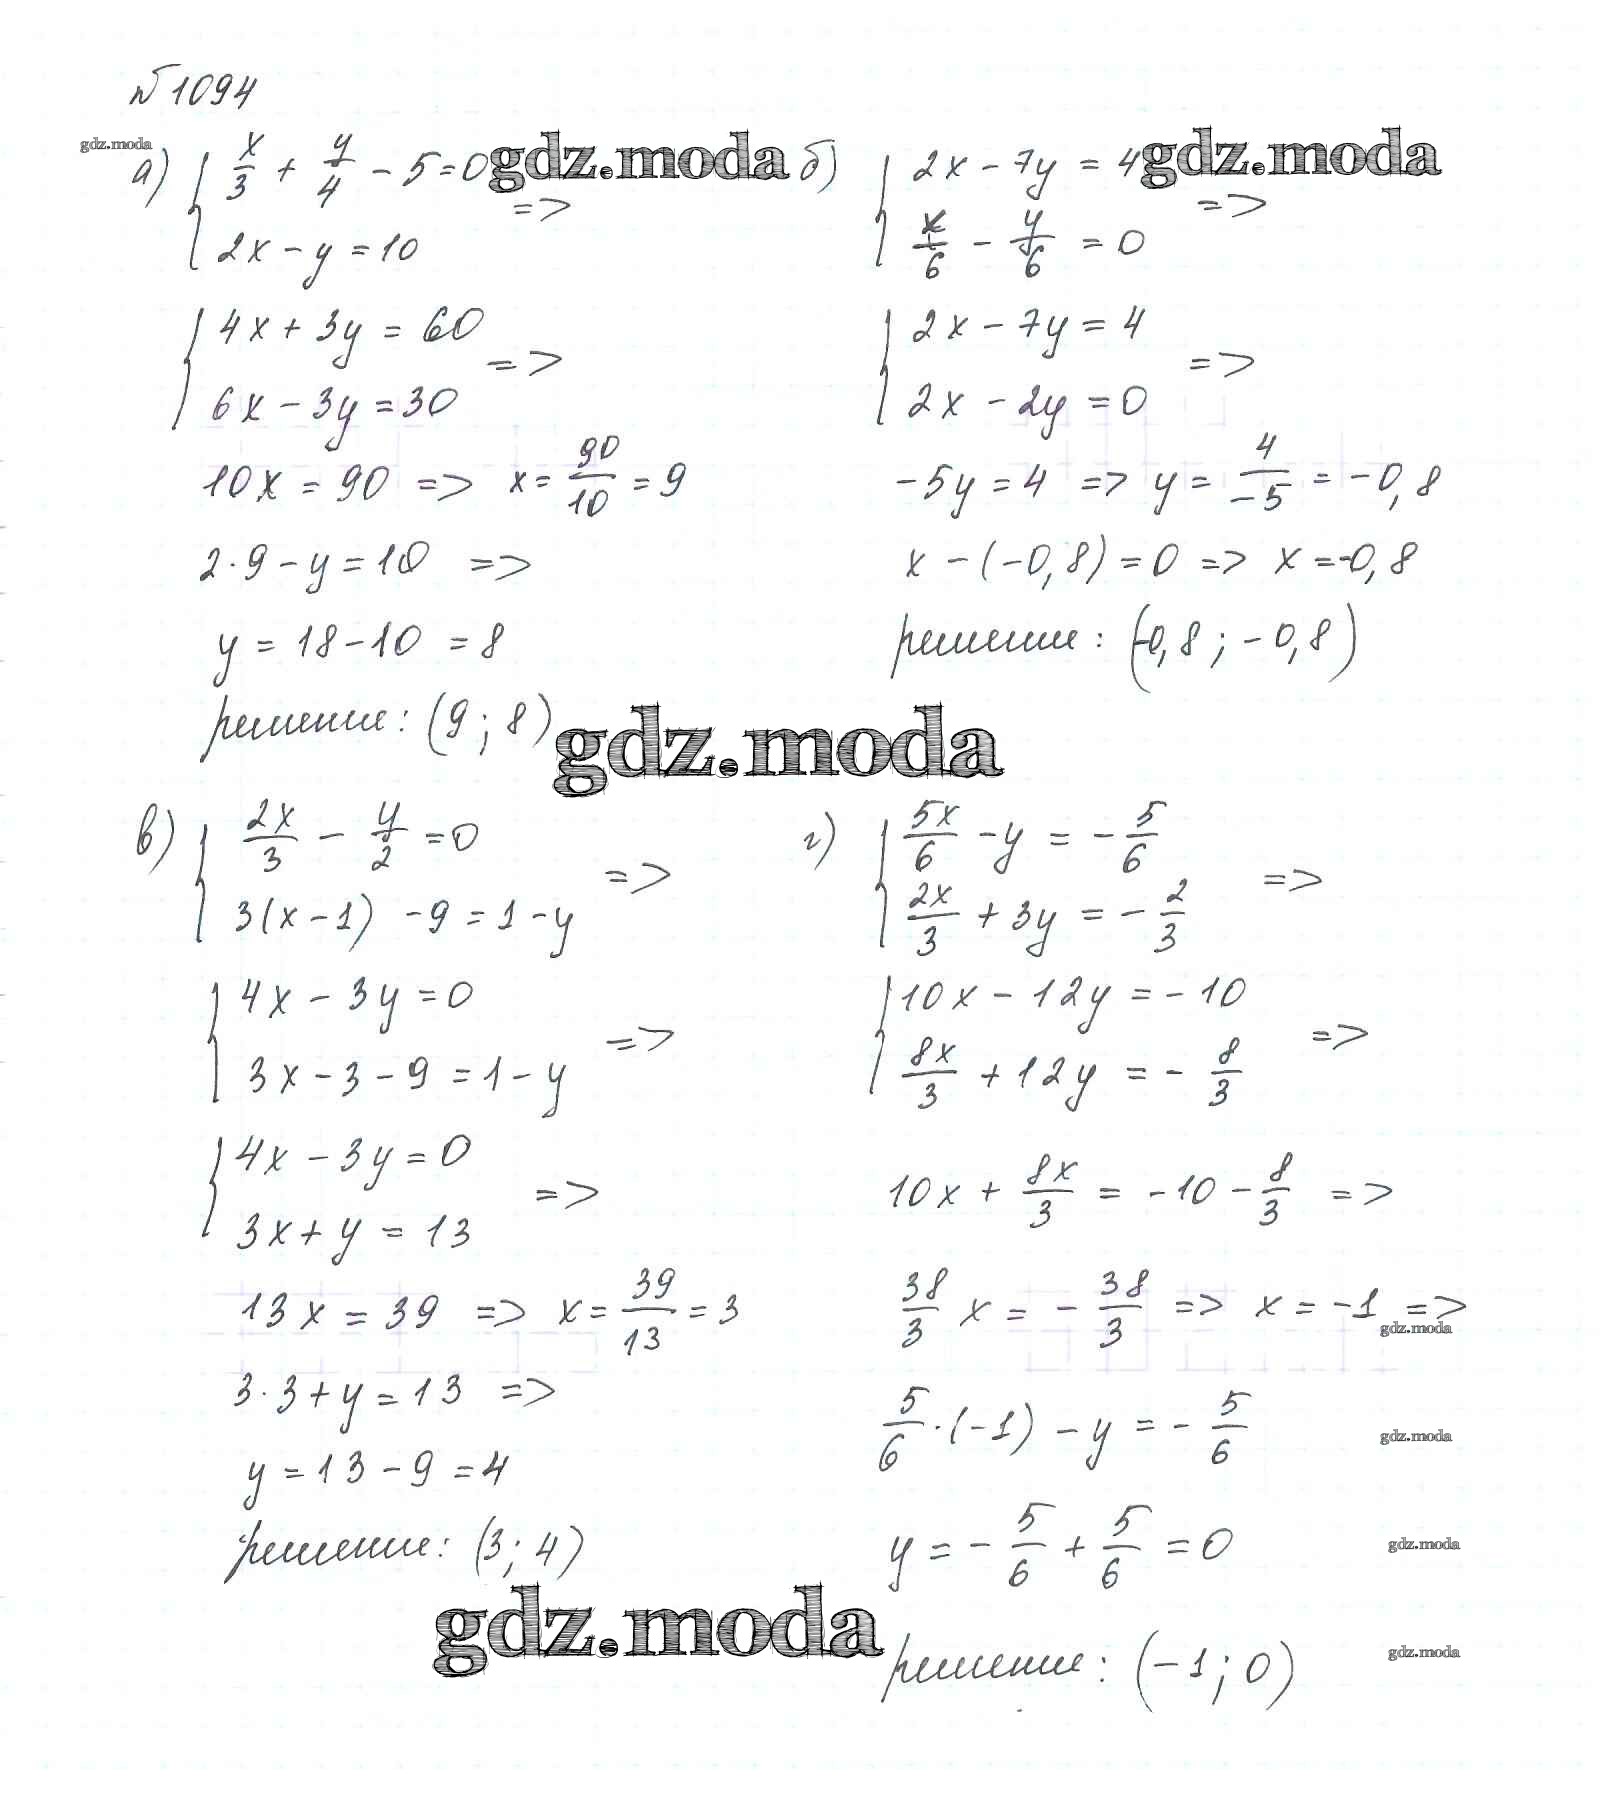 № 1094
gdz.moda
а) { x/3 + y/4 - 5 = 0 gdz.moda
2x - y = 10 =>
{ 4x + 3y = 60
6x - 3y = 30 =>
10x = 90 => x = 90/10 = 9
2·9 - y = 10 =>
y = 18 - 10 = 8
решение: (9; 8)
б) { 2x - 7y = 4 gdz.moda
x/6 - y/6 = 0 =>
{ 2x - 7y = 4
2x - 2y = 0 =>
-5y = 4 => y = 4/-5 = -0,8
x - (-0,8) = 0 => x = -0,8
решение: (-0,8; -0,8)
gdz.moda
в) { 2x/3 - y/2 = 0
3(x - 1) - 9 = 1 - y =>
{ 4x - 3y = 0
3x - 3 - 9 = 1 - y =>
{ 4x - 3y = 0
3x + y = 13 =>
13x = 39 => x = 39/13 = 3
3·3 + y = 13 =>
y = 13 - 9 = 4
решение: (3; 4)
gdz.moda
г) { 5x/6 - y = - 5/6
2x/3 + 3y = - 2/3 =>
{ 10x - 12y = -10
8x/3 + 12y = - 8/3 =>
10x + 8x/3 = -10 - 8/3 =>
38/3 x = - 38/3 => x = -1 =>
gdz.moda
5/6 · (-1) - y = - 5/6
gdz.moda
y = - 5/6 + 5/6 = 0
gdz.moda
решение: (-1; 0)
gdz.moda